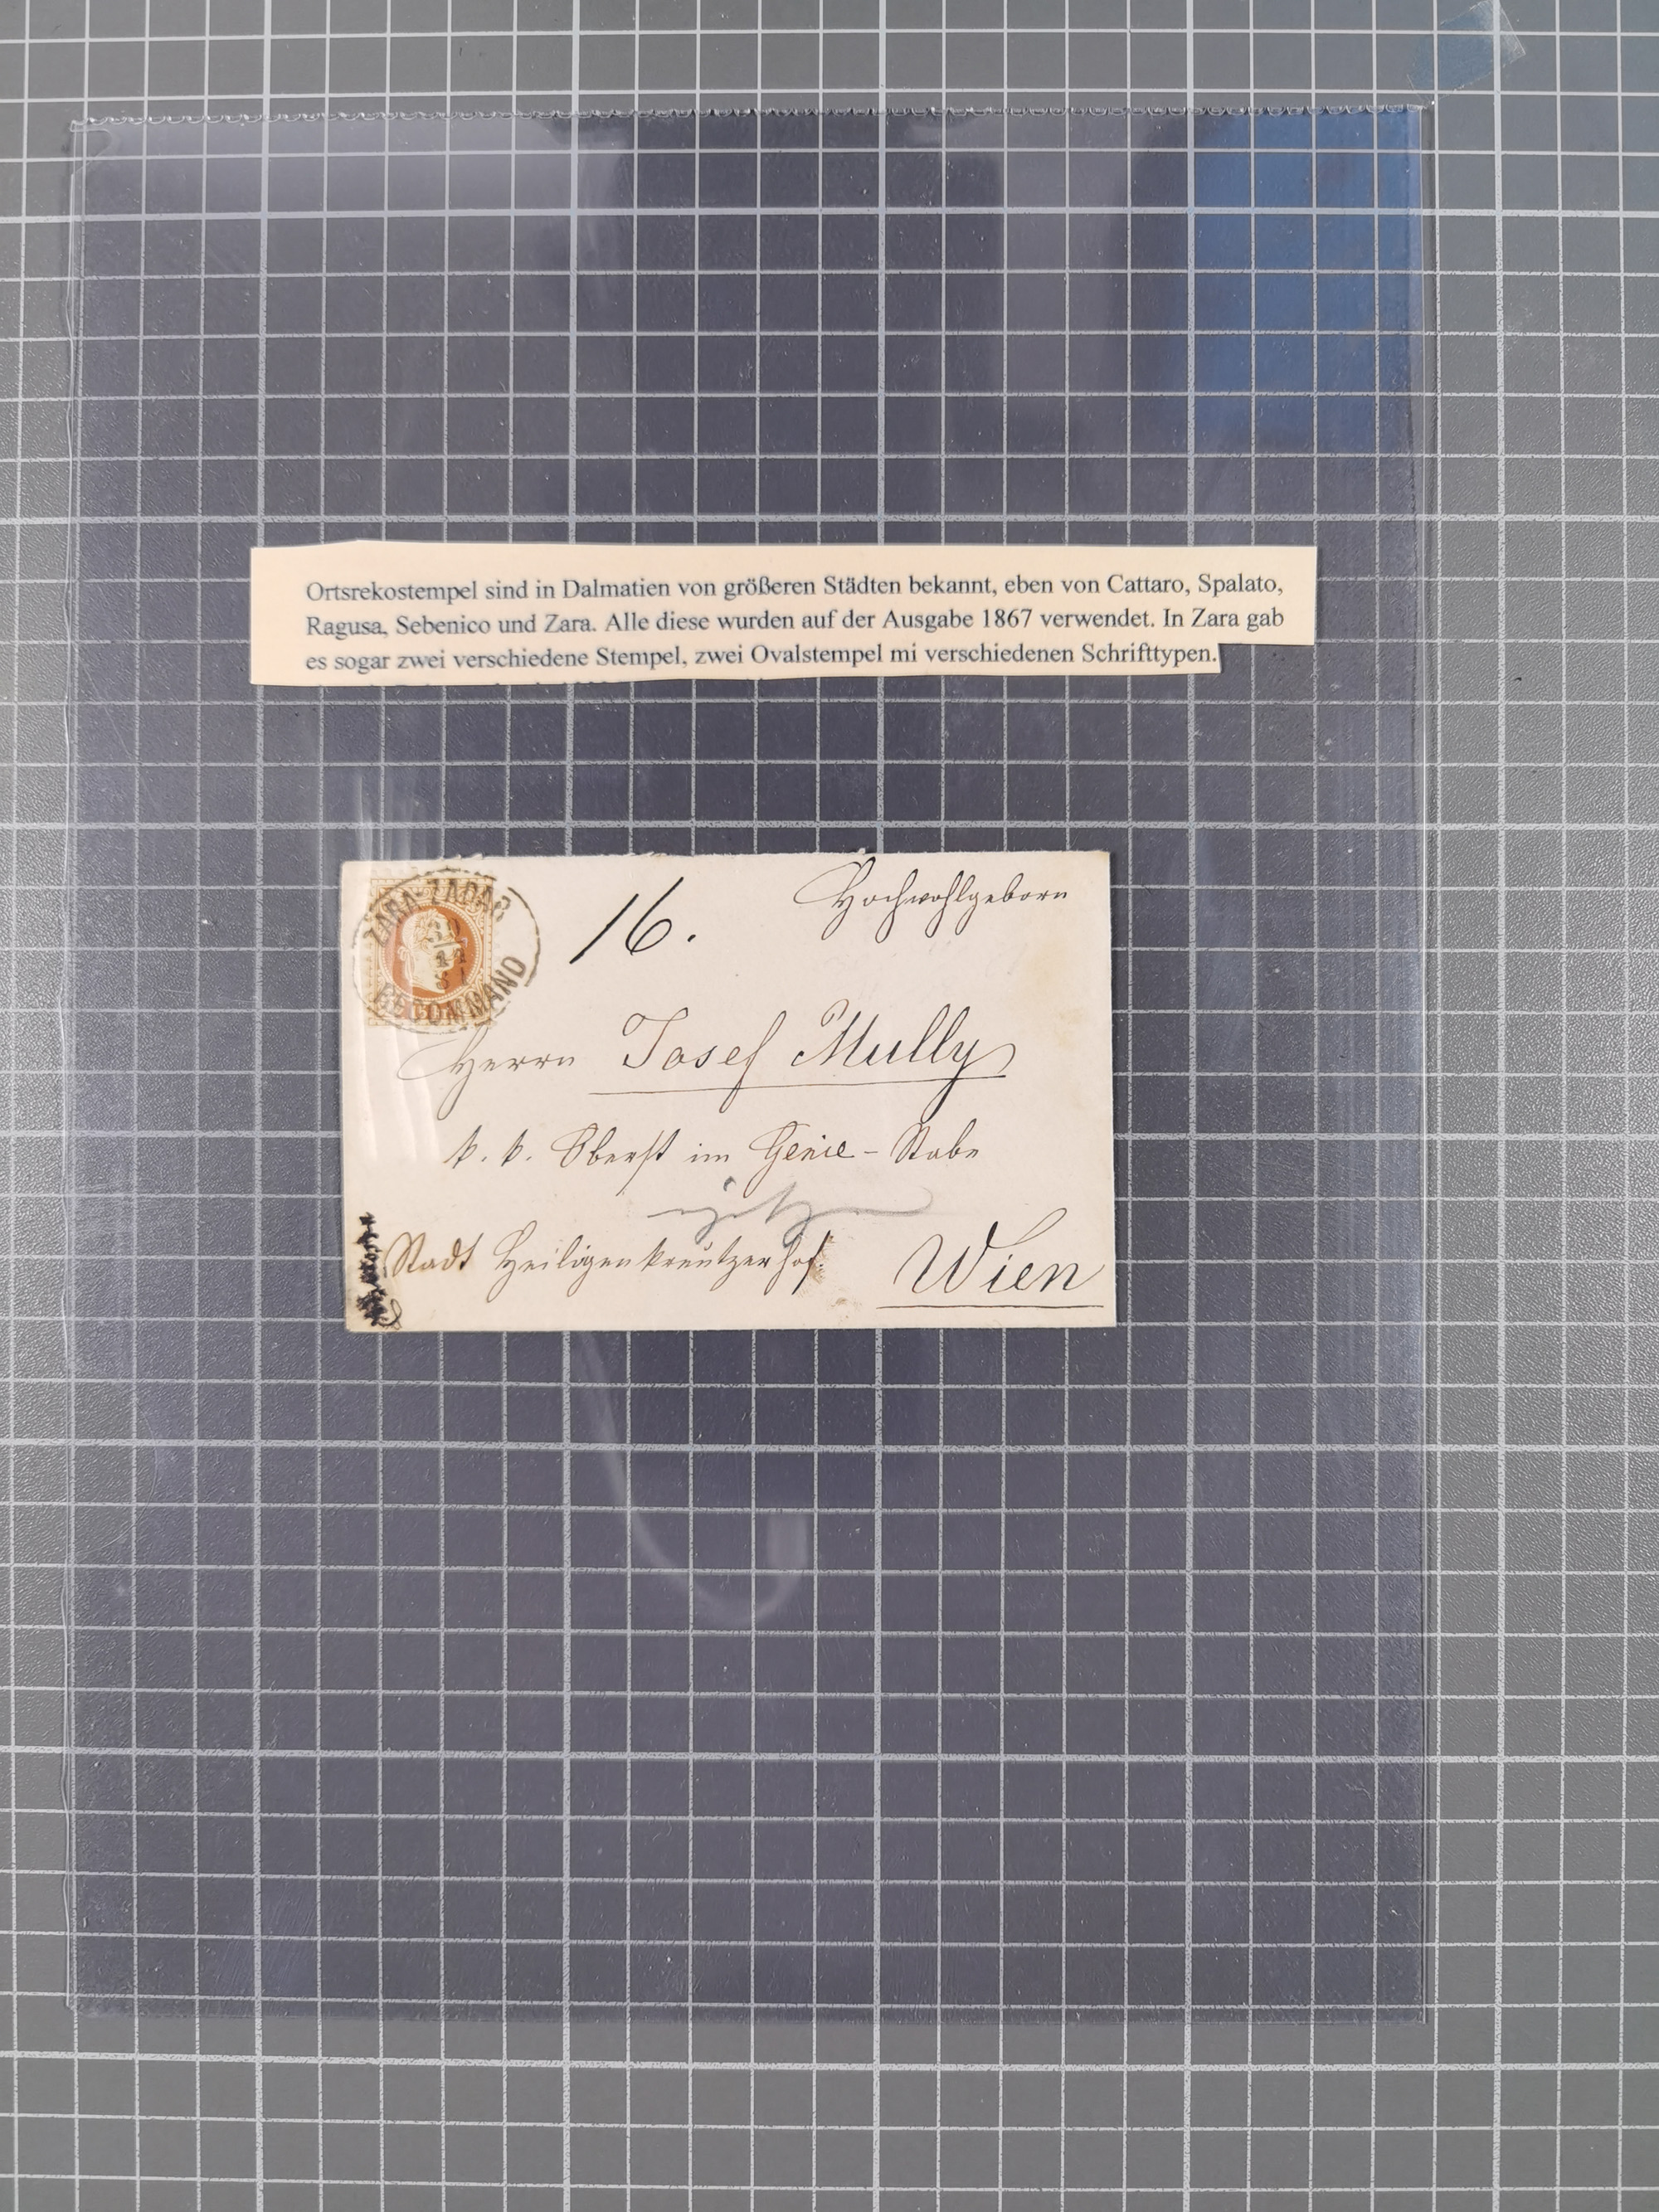 Ortsrekostempel sind in Dalmatien von größeren Städten bekannt, eben von Cattaro, Spalato,
Ragusa, Sebenico und Zara. Alle diese wurden auf der Ausgabe 1867 verwendet. In Zara gab
es sogar zwei verschiedene Stempel, zwei Ovalstempel mi verschiedenen Schrifttypen.
ZARA-ZADAR
RECOMMAND
16.
Hochwohlgeborn
Herrn Josef Mully
k. k. Oberst im Genie-Stabe
Stadt Heiligenkreutzerhof.
Wien